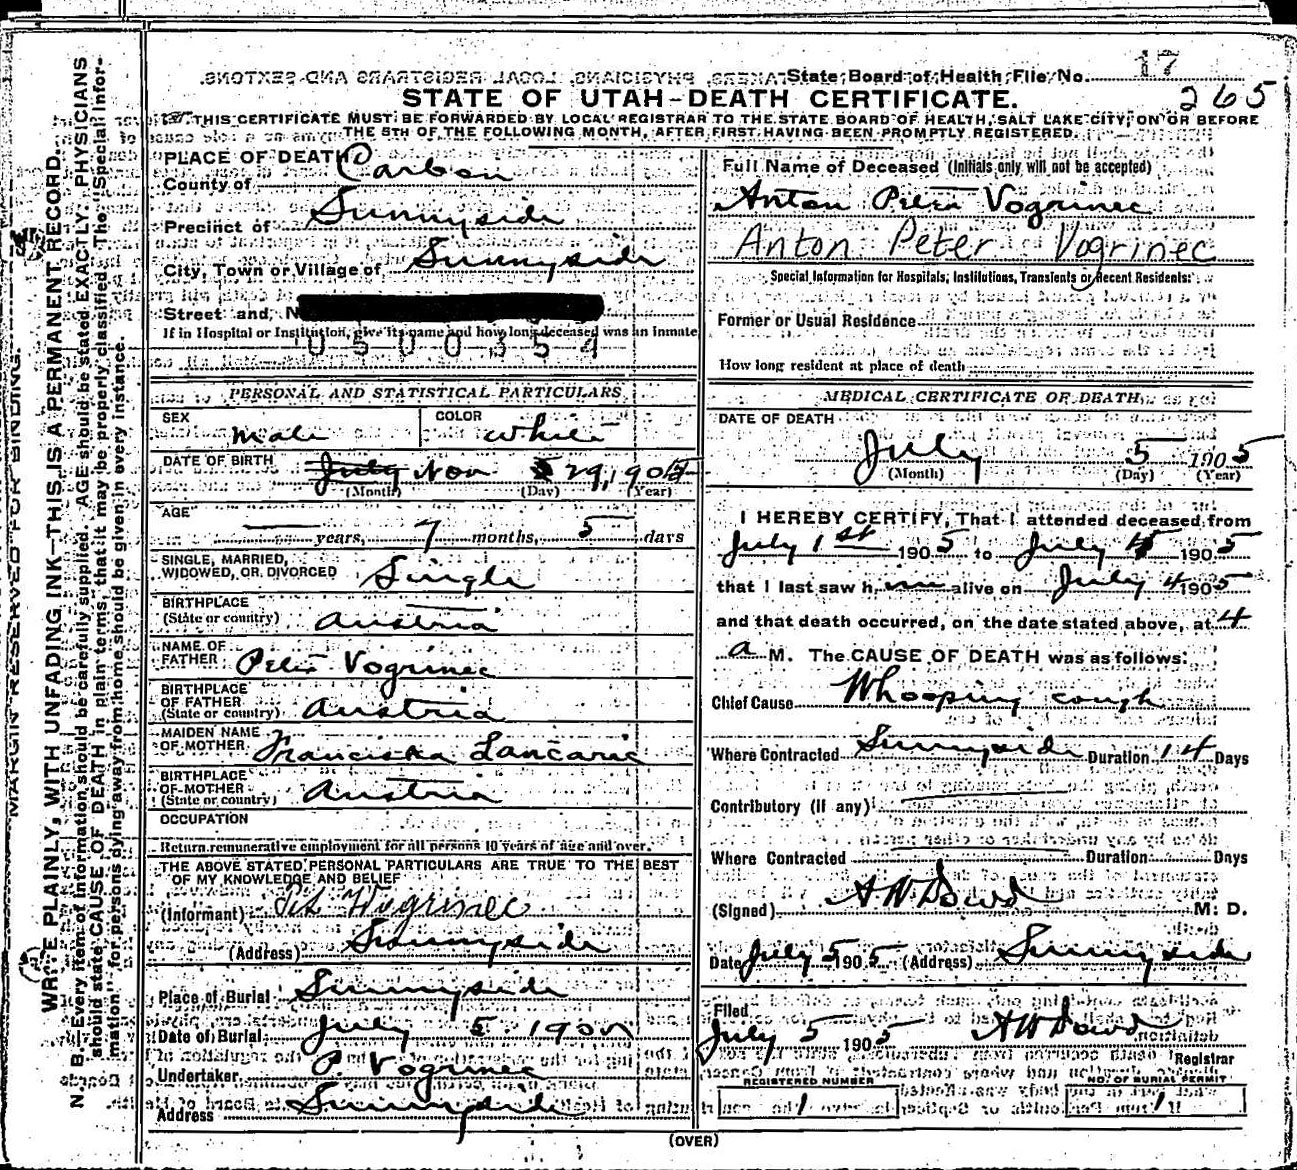 State Board of Health, File No. 17
265
STATE OF UTAH—DEATH CERTIFICATE.
THIS CERTIFICATE MUST BE FORWARDED BY LOCAL REGISTRAR TO THE STATE BOARD OF HEALTH, SALT LAKE CITY, ON OR BEFORE
THE 5TH OF THE FOLLOWING MONTH, AFTER FIRST HAVING BEEN PROMPTLY REGISTERED.
MARGIN RESERVED FOR BINDING.
WRITE PLAINLY, WITH UNFADING INK—THIS IS A PERMANENT RECORD.
N. B.—Every item of information should be carefully supplied. AGE should be stated EXACTLY. PHYSICIANS
should state CAUSE OF DEATH in plain terms, that it may be properly classified. The "Special Infor-
mation" for persons dying away from home should be given in every instance.
PLACE OF DEATH
County of Carbon
Precinct of Sunnyside
City, Town or Village of Sunnyside
Street and N
If in Hospital or Institution, give its name and how long deceased was an inmate
0500354
PERSONAL AND STATISTICAL PARTICULARS
SEX male COLOR white
DATE OF BIRTH July Nov 29, 1905
(Month) (Day) (Year)
AGE
— years, 7 months, 5 days
SINGLE, MARRIED,
WIDOWED, OR DIVORCED Single
BIRTHPLACE
(State or country) Austria
NAME OF
FATHER Peter Vogrinec
BIRTHPLACE
OF FATHER
(State or country) Austria
MAIDEN NAME
OF MOTHER Franciska Lancaric
BIRTHPLACE
OF MOTHER
(State or country) Austria
OCCUPATION
Return remunerative employment for all persons 10 years of age and over.
THE ABOVE STATED PERSONAL PARTICULARS ARE TRUE TO THE BEST
OF MY KNOWLEDGE AND BELIEF
(Informant) Pit Wogrinec
(Address) Sunnyside
Place of Burial Sunnyside
Date of Burial July 5 1905
Undertaker P. Vogrinec
Address Sunnyside
Full Name of Deceased (Initials only will not be accepted)
Anton Peter Vogrinec
Anton Peter Vogrinec
Special Information for Hospitals, Institutions, Transients or Recent Residents:
Former or Usual Residence
How long resident at place of death
MEDICAL CERTIFICATE OF DEATH
DATE OF DEATH
July 5 1905
(Month) (Day) (Year)
I HEREBY CERTIFY, That I attended deceased from
July 1st 1905 to July 4 1905
that I last saw him alive on July 4 1905
and that death occurred, on the date stated above, at 4
a M. The CAUSE OF DEATH was as follows:
Chief Cause Whooping cough
Where Contracted Sunnyside Duration 14 Days
Contributory (if any)
Where Contracted Duration Days
(Signed) A W Dowd M. D.
Date July 5 1905 (Address) Sunnyside
Filed
July 5 1905 A W Dowd
Registrar
REGISTERED NUMBER
1
NO. OF BURIAL PERMIT
1
(OVER)